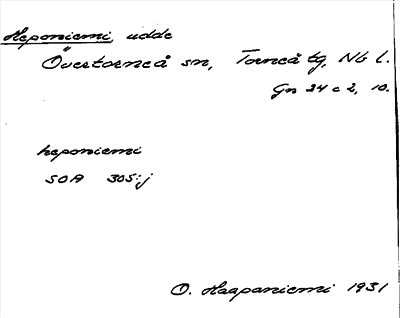 Heponiemi, udde
Övertorneå sn, Torneå tg, Nb l.
Gn 34 c 2, 10.
heponiemi
SOA 305:j
O. Haapaniemi 1931